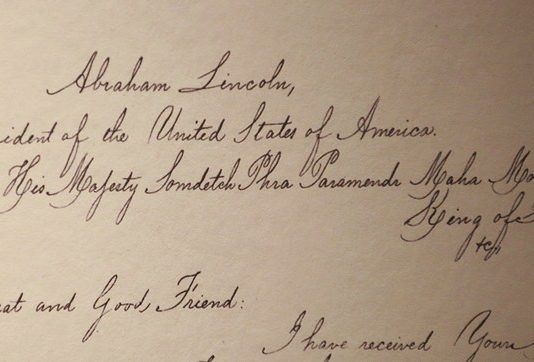 Abraham Lincoln,
ident of the United States of America.
His Majesty Somdetch Phra Paramendr Maha Mo
King of S
&c,
eat and Good Friend:
I have received Your